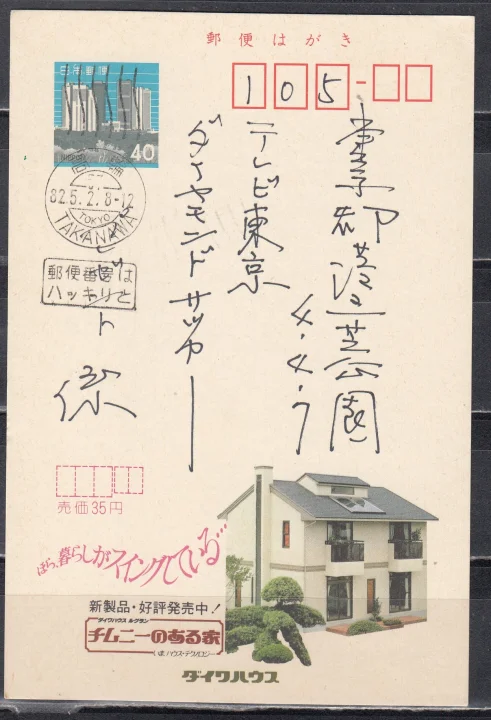 郵便はがき
日本郵便
40
105-
東京都港区芝公園
4.4.7
テレビ東京
ダイヤモンドサッカー
様
82.5.2.8-12
TOKYO
TAKANAWA
郵便番号は
ハッキリと
売価35円
ほら、暮らしがスイングしている…
新製品・好評発売中!
ダイワハウス ル・グラン
チムニーのある家
いま、ハウス・テクノロジー
ダイワハウス